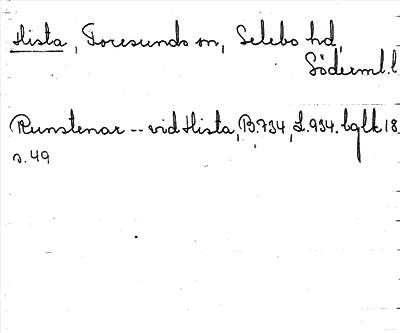 Hista, Toresunds sn, Selebo hd,
Söderml. l
Runstenar -- vid Hista, B. 734, L. 934. bqlk 18
s. 49